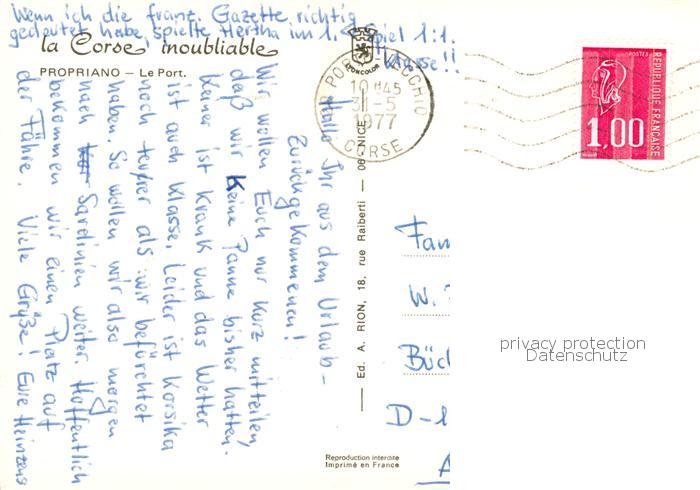 Wenn ich die franz. Gazette richtig
gedeutet habe, spielte Hertha im 1. Spiel 1:1.
Klasse!!
la Corse inoubliable
PROPRIANO – Le Port.
Hallo Ihr aus dem Urlaub-
Zurückgekommenen!
Wir wollen Euch nur kurz mitteilen,
daß wir keine Panne bisher hatten.
Keiner ist krank und das Wetter
ist auch klasse, Leider ist Korsika
noch teurer als wir befürchtet
haben. So wollen wir also morgen
nach Sardinien weiter. Hoffentlich
bekommen wir einen Platz auf
der Fähre. Viele Grüße! Eure Heinzens
COMBICOLOR
PORTO-VECCHIO
10 H45
31-5
1977
CORSE
Ed. A. RION, 18, rue Raiberti — 06 NICE
POSTES
REPUBLIQUE FRANÇAISE
1,00
Fam
W.
Büc
D-1
privacy protection
Datenschutz
Reproduction interdite
Imprimé en France